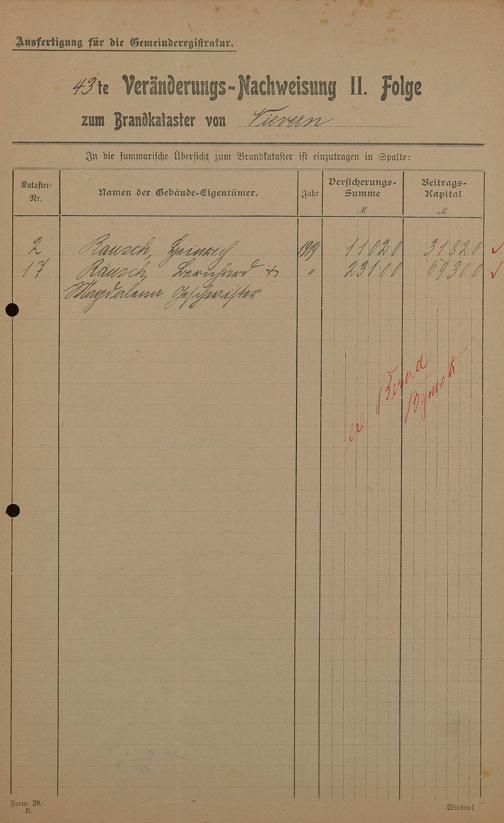 Ausfertigung für die Gemeinderegistratur.
43te Veränderungs-Nachweisung II. Folge
zum Brandkataster von Vievern
In die summarische Übersicht zum Brandkataster ist einzutragen in Spalte:
Kataster-Nr. Namen der Gebäude-Eigentümer. Jahr Versicherungs-Summe M Beitrags-Kapital M
2 Rausch, Heinrich 1919 11020 31820
17 Rausch, Bernhard & " 23100 69300
Magdalena Geschwister
Form. 38.
B.
Wenden!